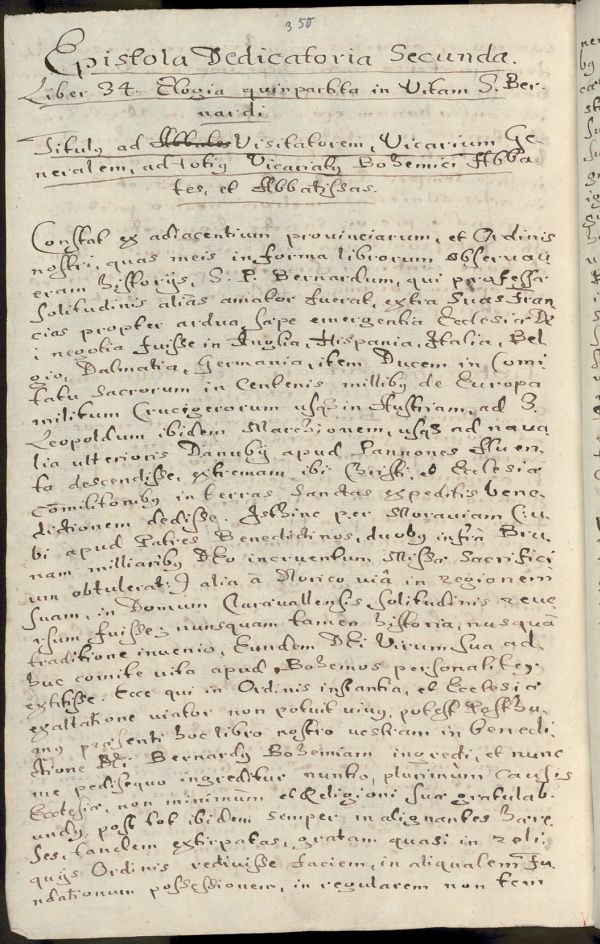 350
Epistola Dedicatoria Secunda.
Liber 34. Elogia quinpartita in Vitam S. Ber-
nardi
Titulꝰ ad Visitatorem, Vicarium Ge-
neralem, ad totiꝰ Vicariatꝰ Bohemici Abba
tes, et Abbatissas.
Constat ex adiacentium provinciarum, et Ordinis
nostri, quas meis in forma librorum observav
eram historijs, S. P. Bernardum, qui professæ
solitudinis alias amator fuerat, extra suas Fran
cias propter ardua, sæpe emergentia Ecclesiæ De
i negotia fuisse in Anglia, Hispania, Italia, Bel
gio, Dalmatia, Germania, item Ducem in Comi
tatu sacrorum in Centenis millibꝰ de Europa
militum Crucigerorum usqꝫ in Austriam, ad S.
Leopoldum ibidem Marchionem, usqꝫ ad nava
lia ulterioris Danubij apud Pannones fluen
ta descendisse, extremam ibi Christi, et Ecclesiæ
Comilitonibꝰ in terras sanctas expeditis bene-
dictionem dedisse. Isthinc per Moraviam (u-
bi apud Patres Benedictinos, duobꝰ infrà Bru
nam milliaribꝰ Deo incruentum Missæ Sacrifici
um obtulerat) alia à Norico viâ in regionem
suam, in Domum Claravallensis solitudinis reve
rsum fuisse; nunquam tamen historia, nusquã
traditione invenio, Eundem Dei Virum sua ad-
huc comite vita apud Bohemos personalitèr
extitisse. Ecce qui in Ordinis instantia, et Ecclesiæ
exaltatione viator non potuit vivꝰ, potest Posthu-
mꝰ præsenti hoc libro nostro vestram in benedi
ctione Dei Bernardꝰ Bohemiam ingredi, et nunc
me pedisequo ingreditur nuntio, plurimùm causis
Ecclesiæ, non minimùm et Religioni suæ gratulab-
undꝰ, post tot ibidem semper malignantes hære
ses, tandem extirpatas, gratam quasi in reli-
quijs Ordinis redivisse faciem, in aliqualem fu
ndationum possessionem, in regularem non tem